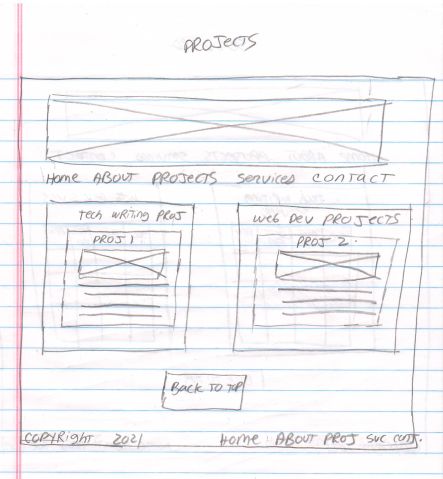 PROJECTS
Home ABOUT PROJECTS Services CONTACT
Tech Writing PROJ
Web Dev PROJECTS
PROJ 1
PROJ 2.
Back TO TOP
COPYRight 2021
Home ABOUT PROJ SVC CONT.